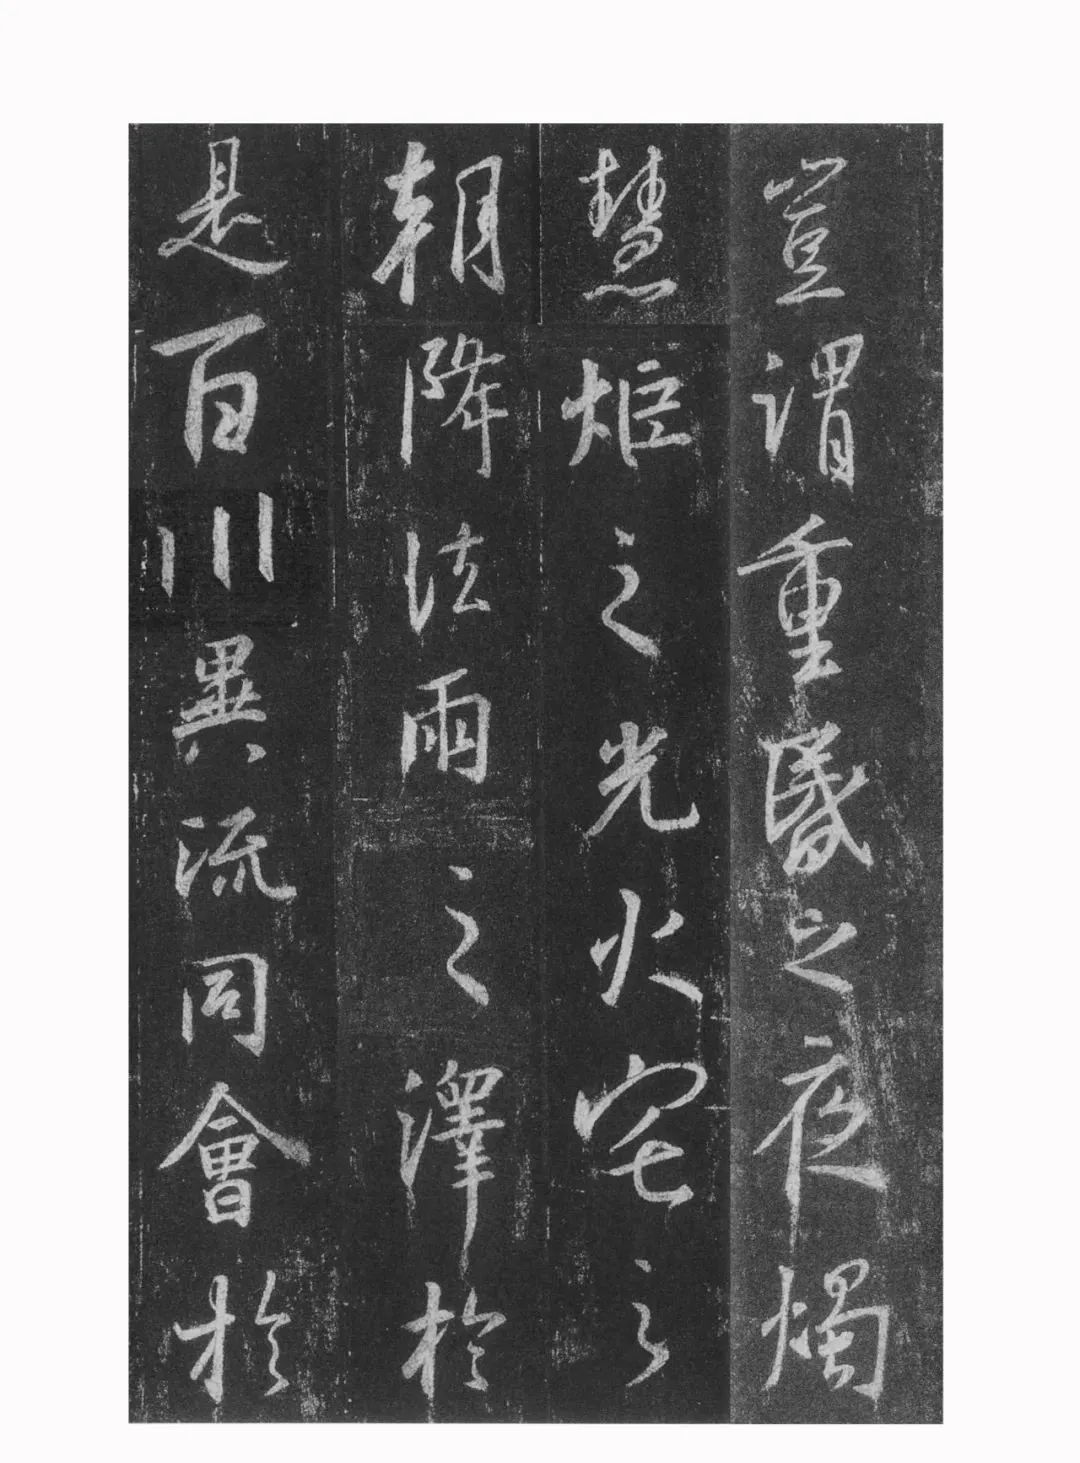 豈謂重昬之夜燭
慧炬之光火宅之
朝降法雨之澤於
是百川異流同會於